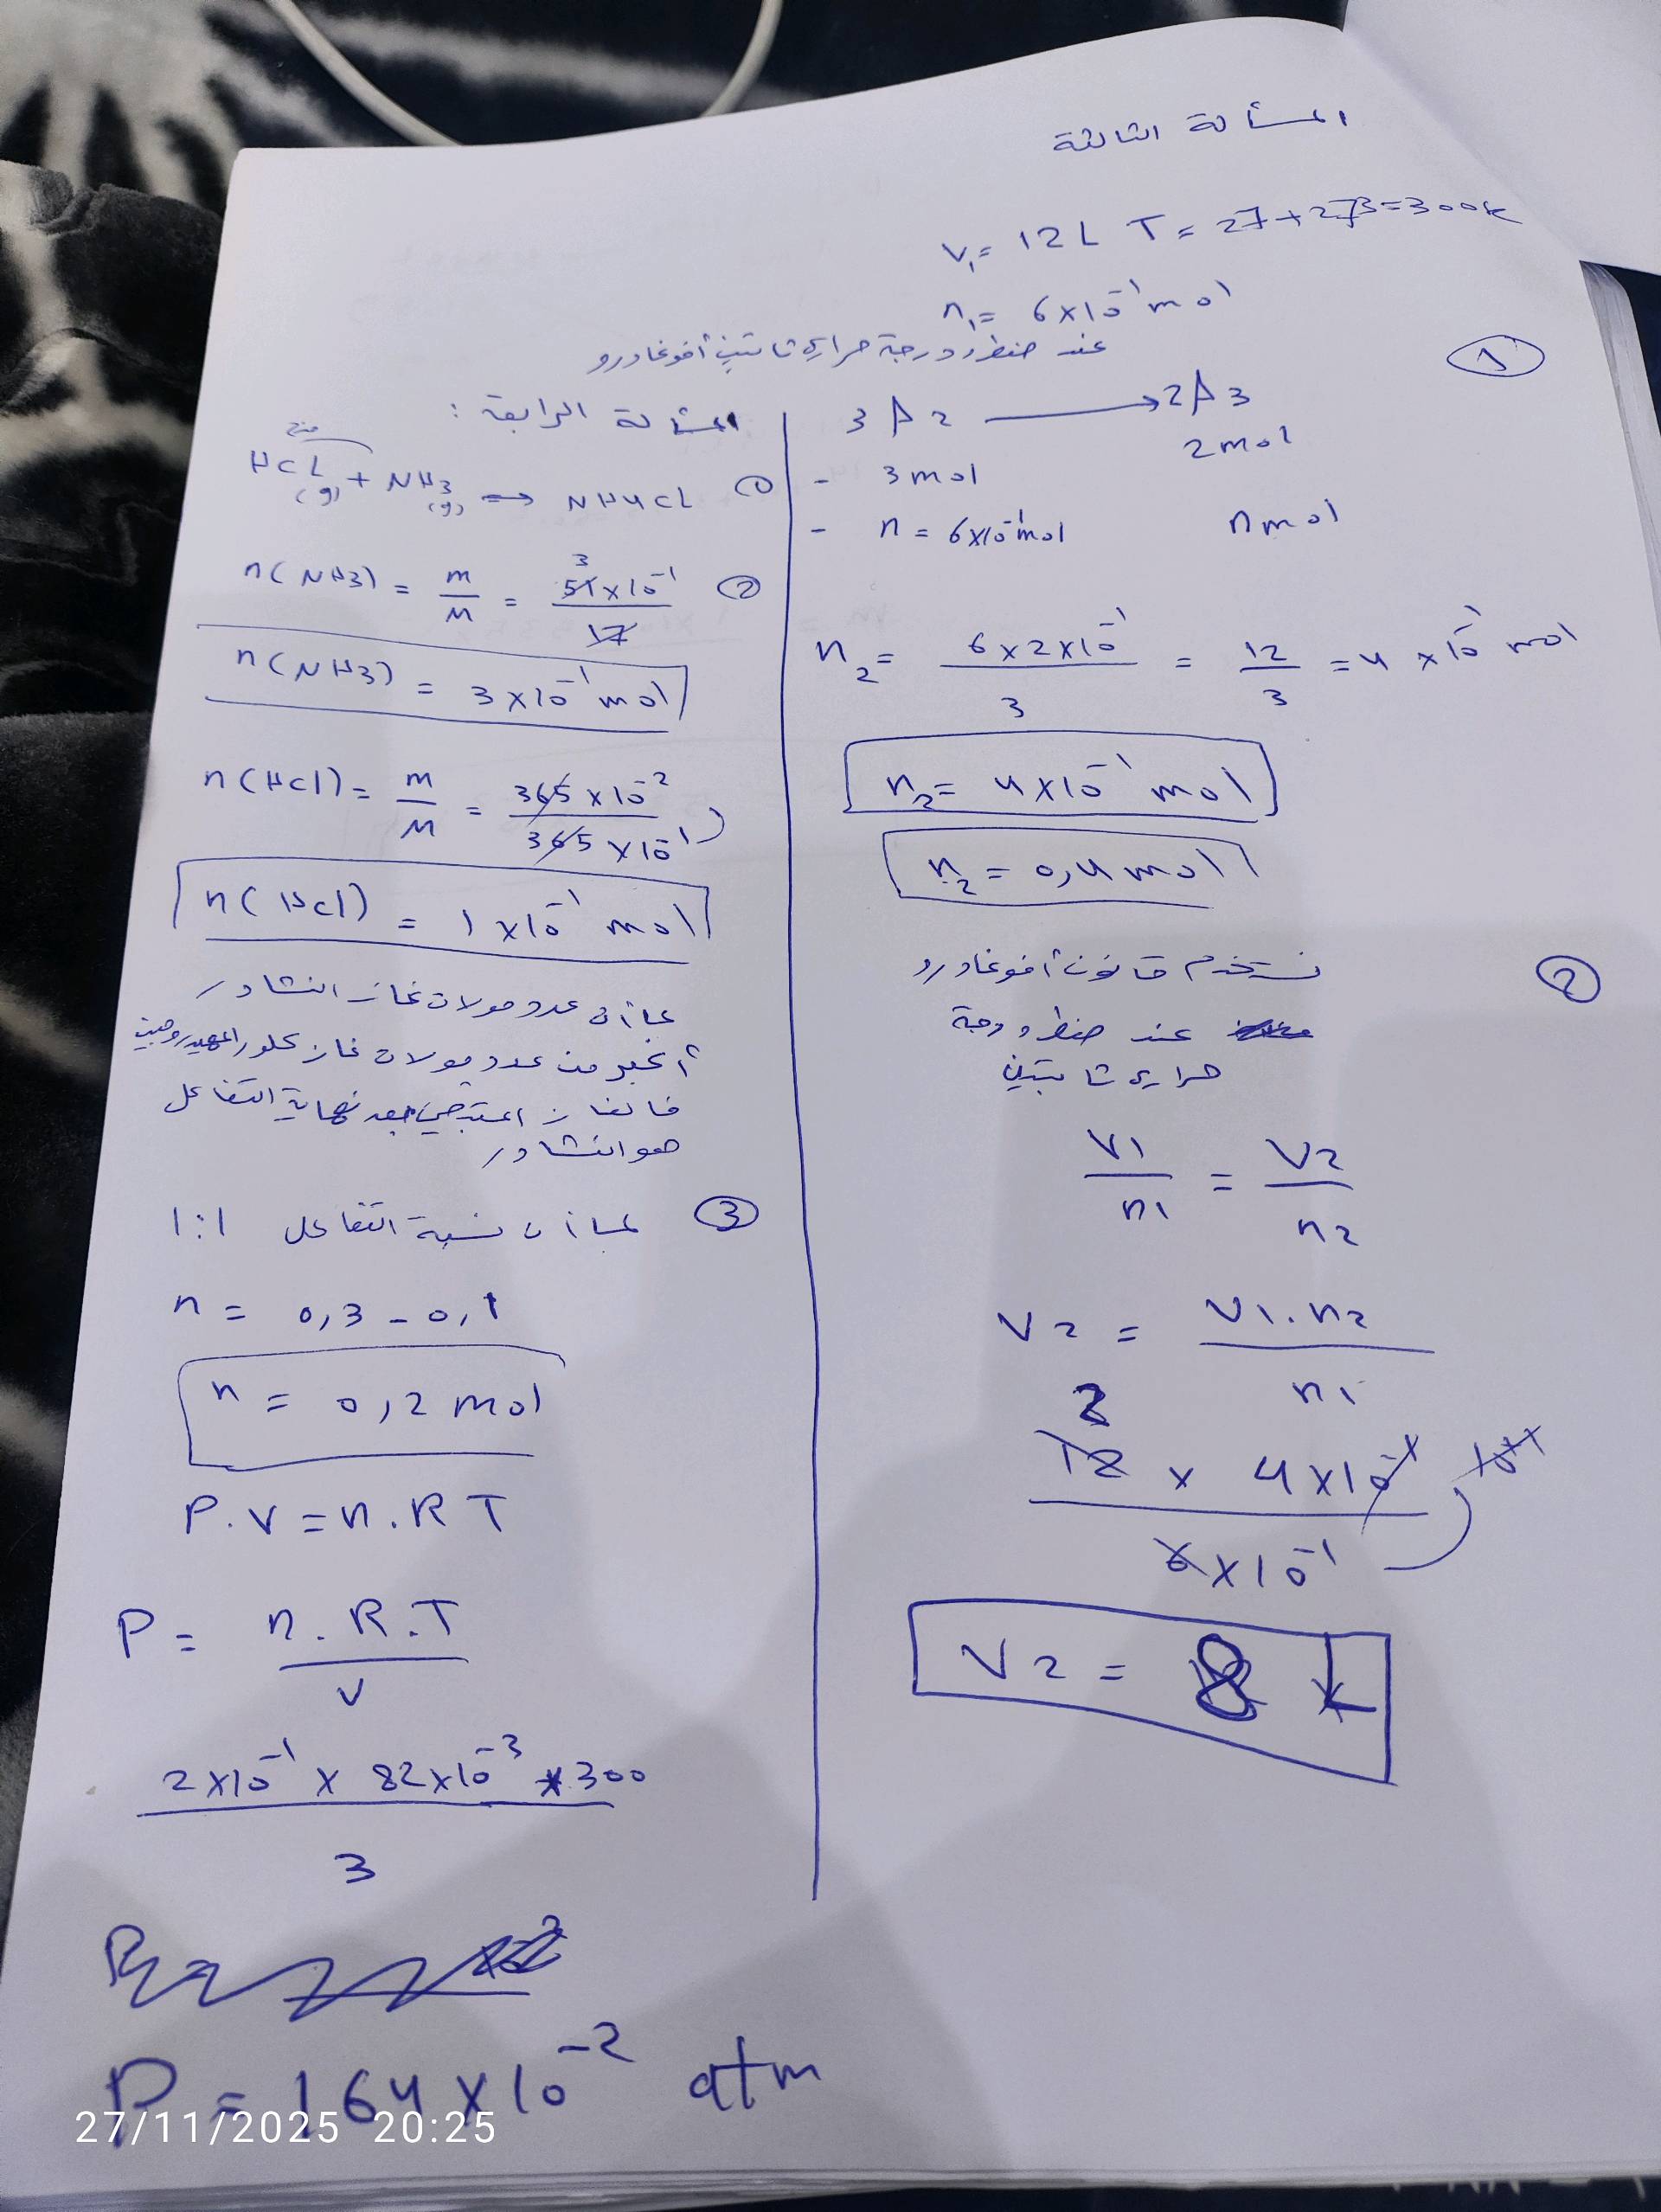 المسألة الثالثة
V₁ = 12 L T = 27 + 273 = 300 K
n₁ = 6×10⁻¹ mol
عند ضغط ودرجة حرارة ثابتين أفوغادرو
①
3A2 ⟶ 2A3
- 3 mol 2 mol
- n = 6×10⁻¹ mol n mol
n₂ = 6×2×10⁻¹ / 3 = 12 / 3 = 4 × 10⁻¹ mol
n₂ = 4×10⁻¹ mol
n₂ = 0,4 mol
②
نستخدم قانون أفوغادرو
عند ضغط ودرجة
حرارة ثابتين
V1 / n1 = V2 / n2
V2 = V1.n2 / n1
2
12 × 4×10⁻¹ / 6×10⁻¹
V2 = 8 L
المسألة الرابعة :
① HCL(g) + NH3(g) ⟶ NH4CL
② n(NH3) = m / M = 51×10⁻¹ / 17
3
n(NH3) = 3×10⁻¹ mol
n(HCl) = m / M = 365×10⁻² / 365×10⁻¹
n(HCl) = 1×10⁻¹ mol
بما أن عدد مولات غاز النشادر
أكبر من عدد مولات غاز كلور الهيدروجين
فالغاز المتبقي بعد نهاية التفاعل
هو النشادر
③ بما أن نسبة التفاعل 1:1
n = 0,3 - 0,1
n = 0,2 mol
P.V = n.R T
P = n.R.T / V
2×10⁻¹ × 82×10⁻³ × 300 / 3
P = 164×10⁻² atm
27/11/2025 20:25